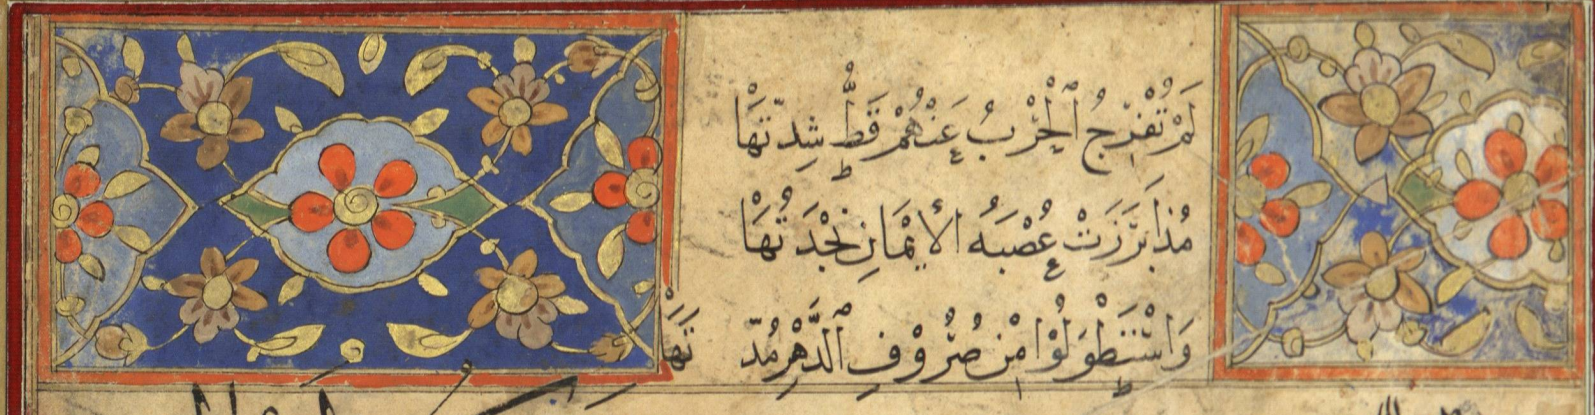 لَمْ تُفْرِجُ ٱلْحَرْبُ عَنْهُمْ قَطُّ شِدَّتَهَا
مُذ ابَرَزَتْ عُصْبَهُ الأيْمَانِ نَجْدَتُهَا
وَاسْتَطْوَلُوْا مِنْ صُرُوْفِ ٱلدَّهْرِ مُدَّتَهَا